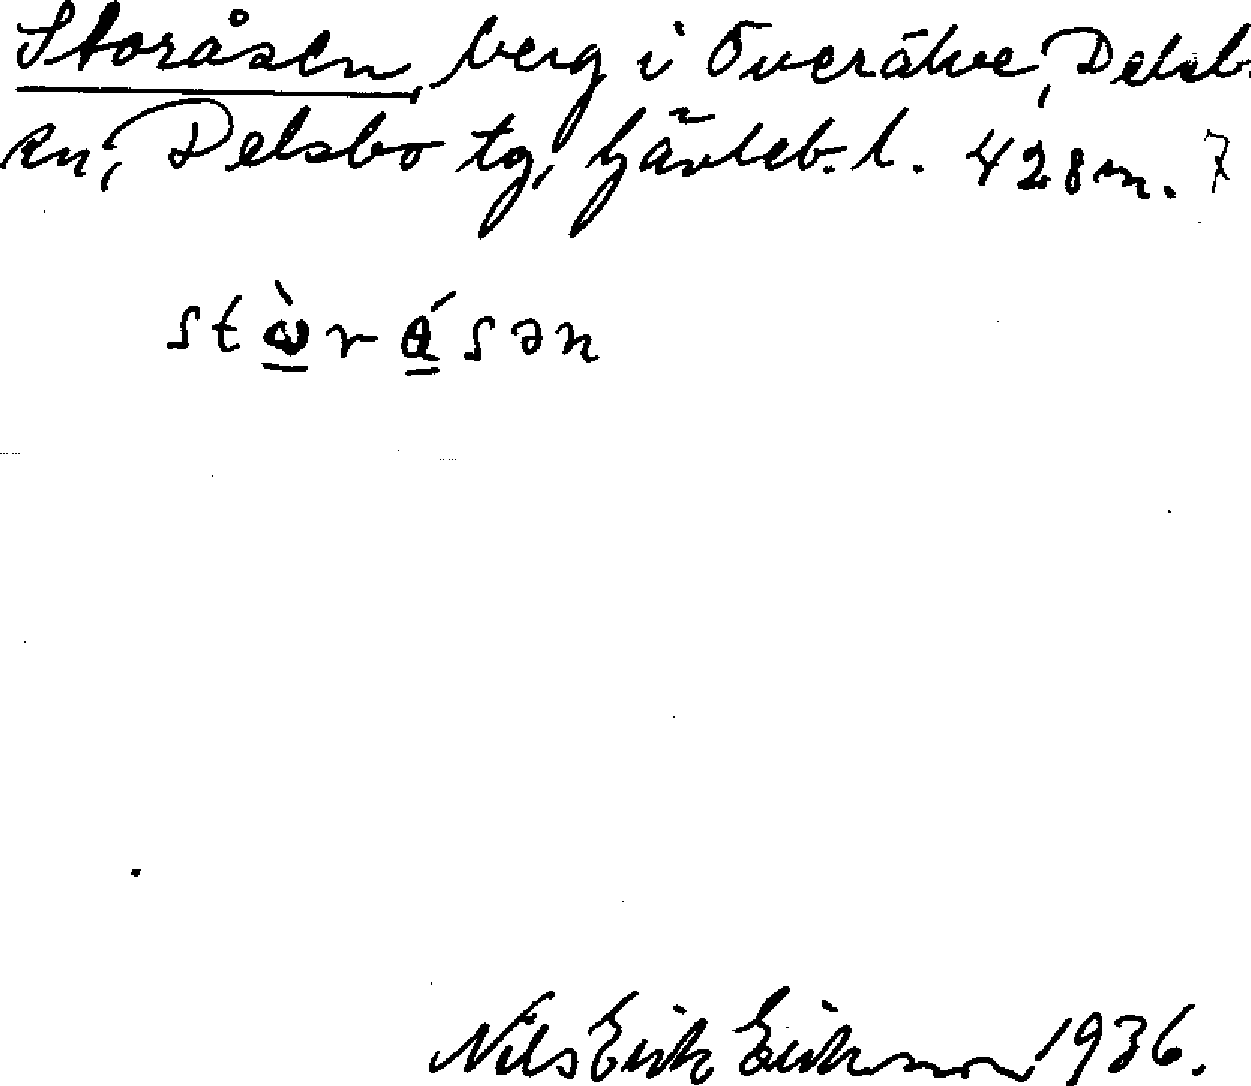 Storåsen, berg i Överälve, Delsb.
sn, Delsbo tg, Gävleb. l. 428 m. 7
stὼrɑ́sən
Nils Erik Eriksson 1936.